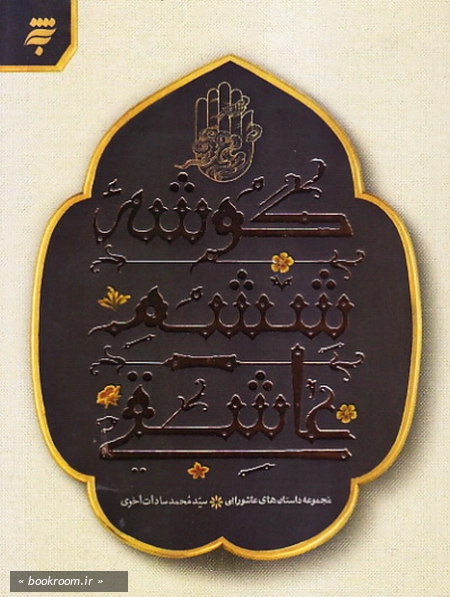 گوشهٔ
ششم
عاشقی
مجموعه داستان‌های عاشورایی سیّد محمد سادات اخوی
« bookroom.ir »